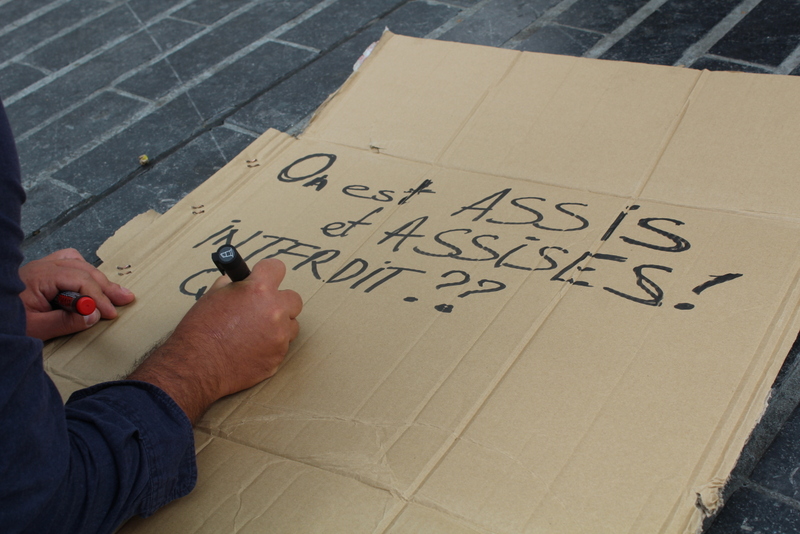 On est ASSIS
et ASSISES!
iNTERDIT.??